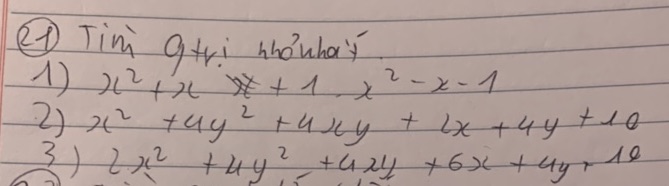 21) Tìm gtrị nhỏ nhất.
1) x² + x + 1 . x² - x - 1
2) x² + 4y² + 4xy + 2x + 4y + 10
3) 2x² + 4y² + 4xy + 6x + 4y + 10